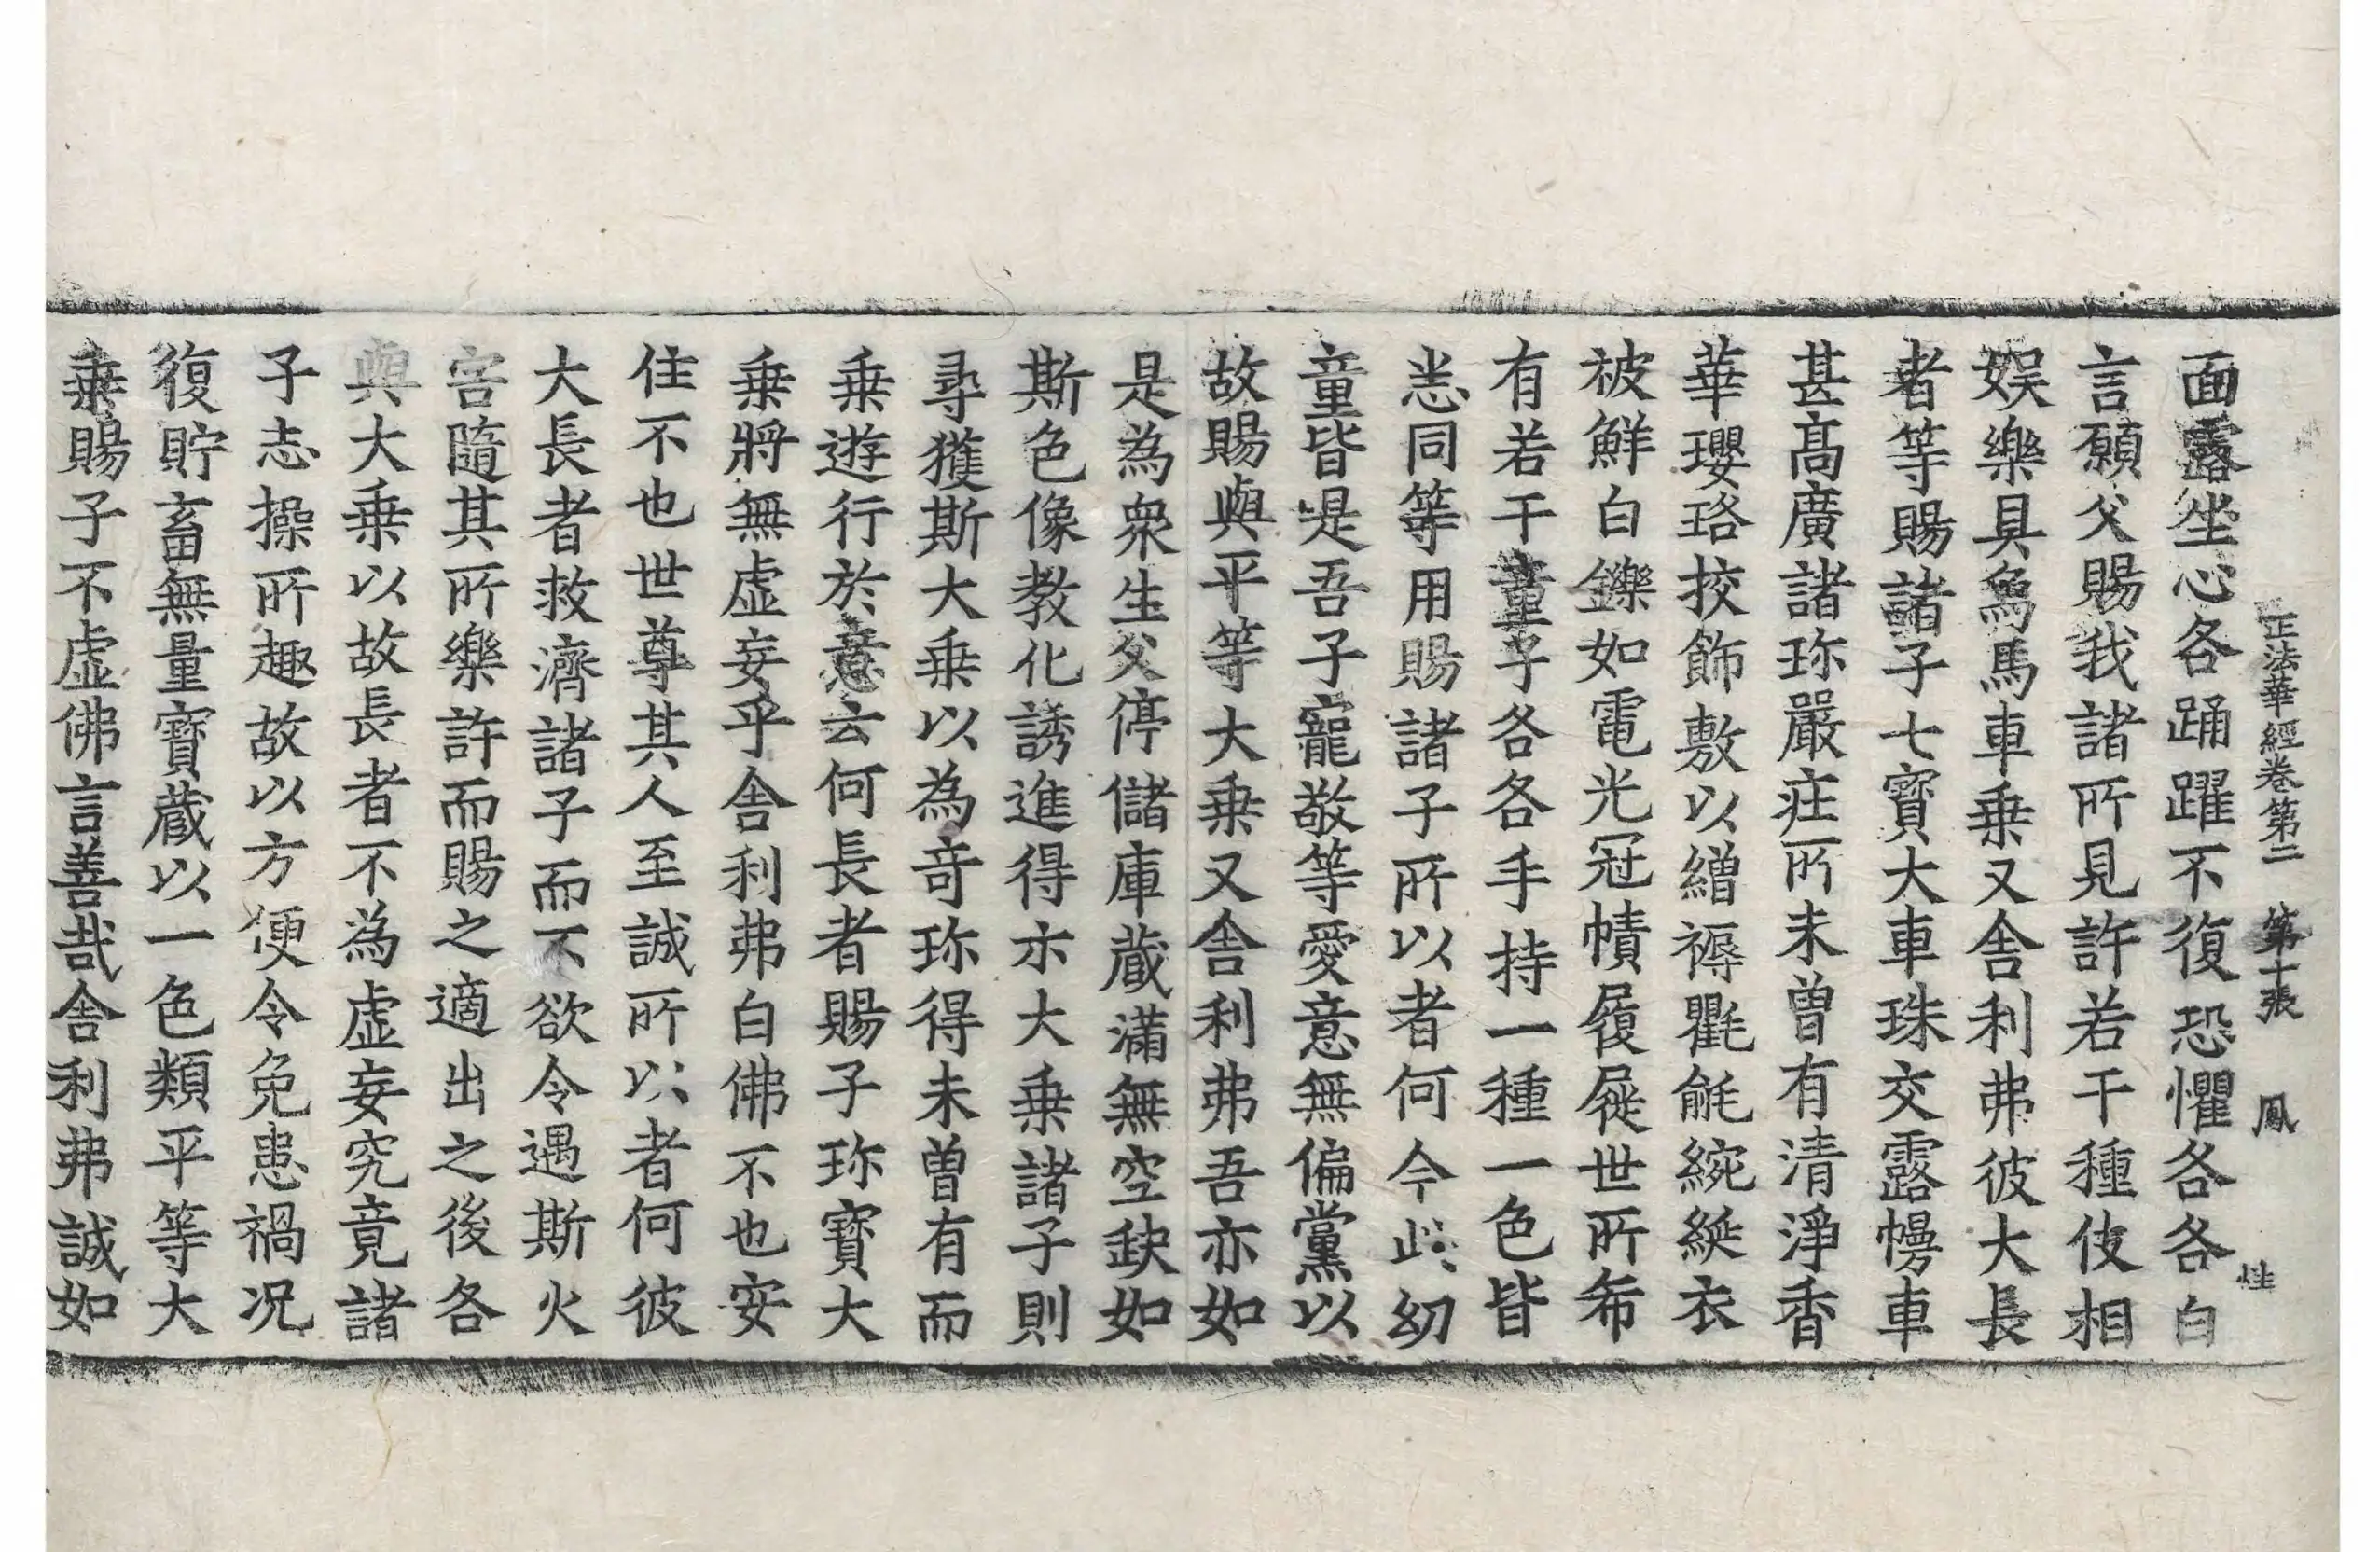 正法華經卷第二 第十張 鳳 性
面露坐心各踊躍不復恐懼各各白
言願父賜我諸所見許若干種伎相
娛樂具烏馬車乗又舎利弗彼大長
者等賜諸子七寶大車珠交露幔車
甚髙廣諸珎嚴庄所未曽有清淨香
華瓔珞挍飾敷以繒褥氍毹綩綖衣
被鮮白鑠如電光冠幘履屣世所希
有若干童子各各手持一種一色皆
悉同等用賜諸子所以者何今此幼
童皆是吾子寵敬等愛意無偏黨以
故賜與平等大乗又舎利弗吾亦如
是為衆生父停儲庫蔵滿無空缺如
斯色像教化誘進得示大乗諸子則
尋獲斯大乗以為竒珎得未曽有而
乗遊行於意云何長者賜子珎寶大
乗將無虚妄乎舎利弗白佛不也安
住不也世尊其人至誠所以者何彼
大長者救濟諸子而不欲令遇斯火
害隨其所樂許而賜之適出之後各
與大乗以故長者不為虚妄究竟諸
子志操所趣故以方便令免患禍况
復貯畜無量寶蔵以一色類平等大
乗賜子不虚佛言善哉舎利弗誠如